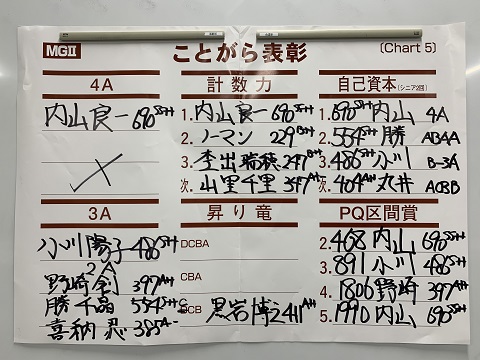 MGⅡ
ことがら表彰
(Chart 5)
4A
内山良一 690SSH
3A
小川陽子 486SH
2A
野崎 397AH
勝千晶 554SH
喜納忍 385A
計数力
1. 内山良一 690SSH
2. ノーマン 229BH
3. 杢出瑞穂 247BH
次. 山里千里 347AH
昇り竜
DCBA
CBA
DCB 黒岩博之 411AH
自己資本(シニア2回)
1. 690SSH 内山 4A
2. 554SH 勝 ABAA
3. 486SH 小川 B-3A
次. 404AH 丸井 ACBB
PQ区間賞
2. 468 内山 690SSH
3. 891 小川 486SH
4. 1806 野崎 397AH
5. 1990 内山 690SSH